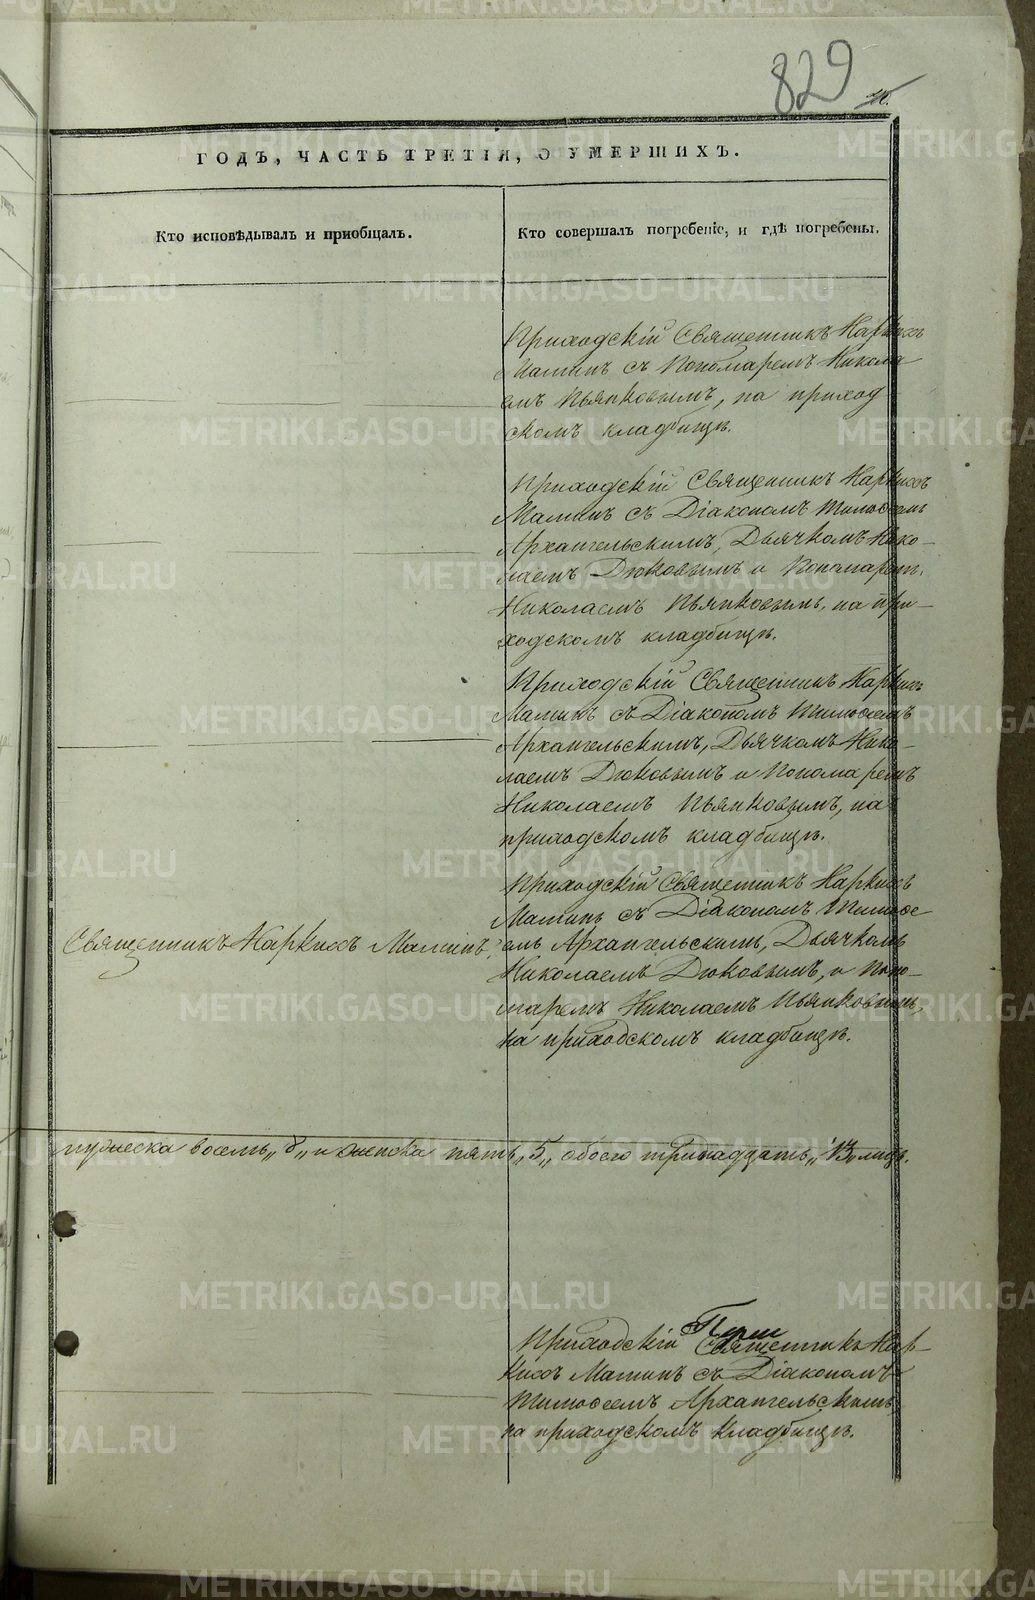 829
ГОДЪ, ЧАСТЬ ТРЕТІЯ, О УМЕРШИХЪ.
Кто исповѣдывалъ и пріобщалъ.
Кто совершалъ погребеніе, и гдѣ погребены.
Приходскій Священникъ Наркиссъ
Маминъ съ Пономаремъ Никола
емъ Пьянковымъ, на приход
скомъ кладбищѣ.
Приходскій Священникъ Наркиссъ
Маминъ съ Діакономъ Тимоѳеемъ
Архангельскимъ, Дьячкомъ Нико–
лаемъ Дюковымъ и Пономарем.
Николаемъ Пьянковымъ, на при–
ходскомъ кладбищѣ.
Приходскій Священникъ Наркиссъ
Маминъ съ Діакономъ Тимоѳеемъ
Архангельскимъ, Дьячкомъ Нико–
лаемъ Дюковымъ и Пономаремъ
Николаемъ Пьянковымъ, на
приходскомъ кладбищѣ.
Священникъ Наркиссъ Маминъ.
Приходскій Священникъ Наркиссъ
Маминъ съ Діакономъ Тимоѳе
емъ Архангельскимъ, Дьячкомъ
Николаемъ Дюковымъ, и Поно–
маремъ Николаемъ Пьянковымъ,
на приходскомъ кладбищѣ.
мужеска восемь „8„ и женска пять „5„ обоего тринадцать „13„ лицъ.
Приходскій Священникъ Нар–
киссъ Маминъ съ Діакономъ
Тимоѳеемъ Архангельскимъ,
на приходскомъ кладбищѣ.
METRIKI.GASO-URAL.RU